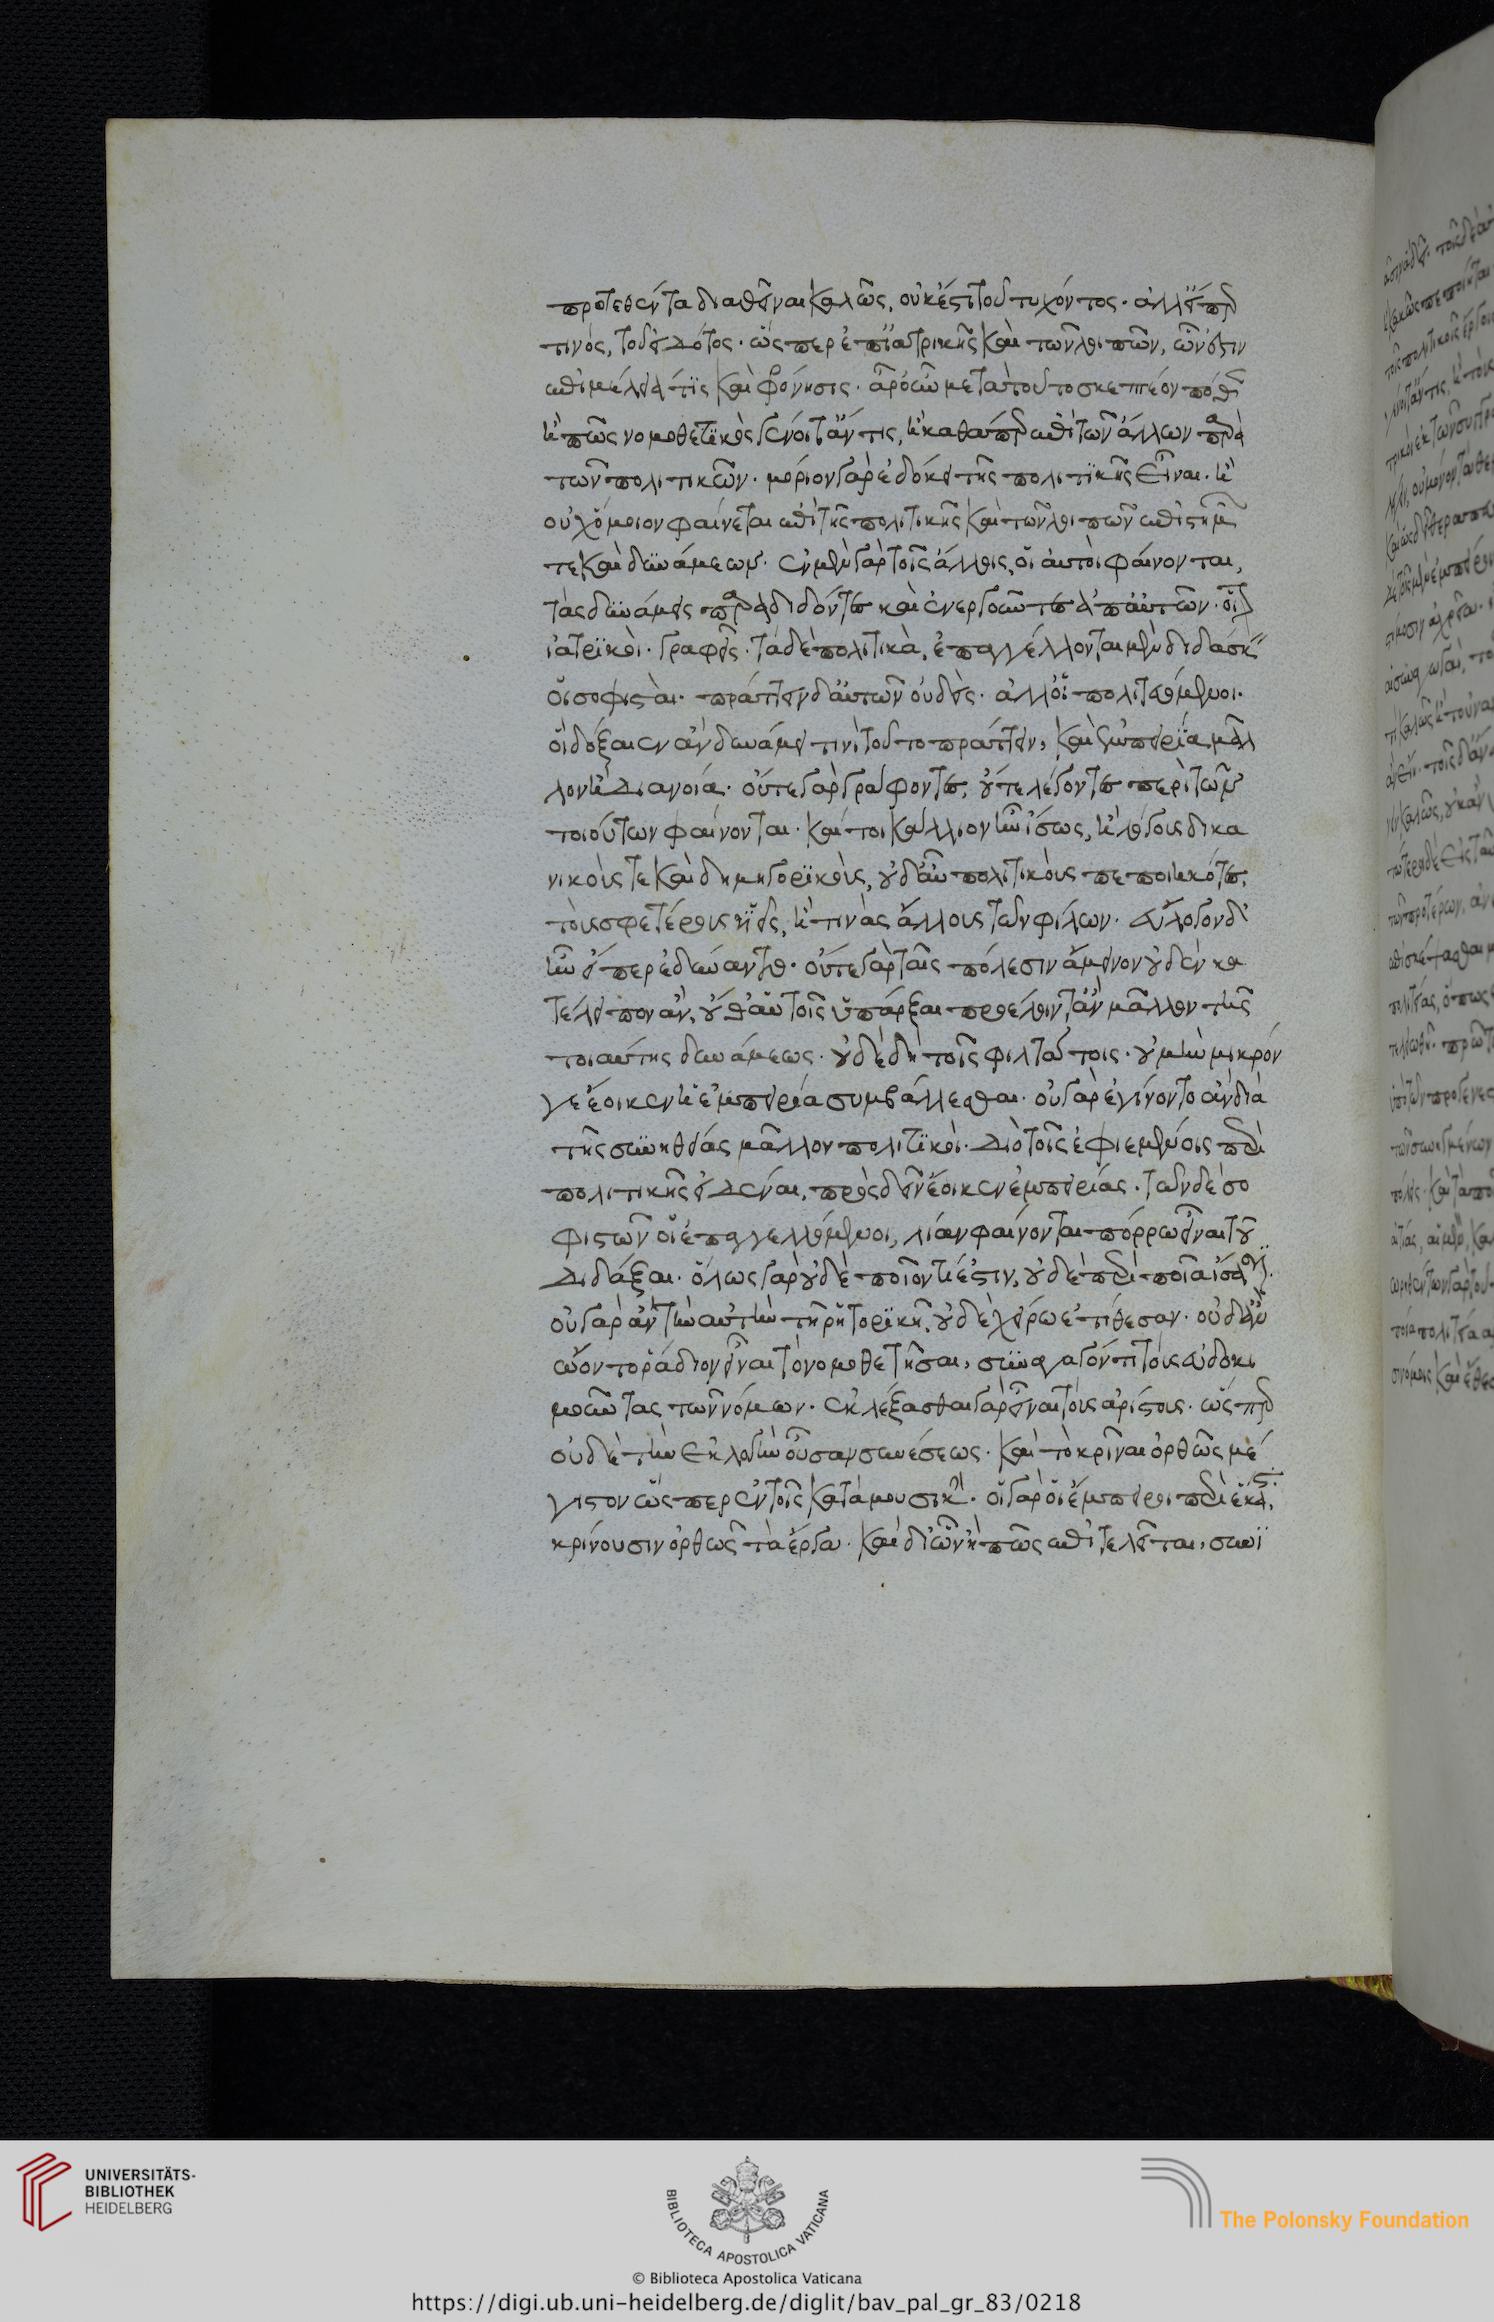 προτεθέντα διαθεῖναι καλῶς, οὐκ ἔστι τοῦ τυχόντος· ἀλλ' εἴπερ
τινός, τοῦ εἰδότος· ὥσπερ ἐπ' ἰατρικῆς καὶ τῶν λοιπῶν, ὧν ἐστιν
ἐπιμέλειά τις καὶ φρόνησις· ἆρ' οὖν μετὰ τοῦτο σκεπτέον πόθεν
ἢ πῶς νομοθετικὸς γένοιτ' ἄν τις, ἢ καθάπερ ἐπὶ τῶν ἄλλων παρὰ
τῶν πολιτικῶν· μόριον γὰρ ἐδόκει τῆς πολιτικῆς εἶναι· ἢ
οὐχ ὅμοιον φαίνεται ἐπὶ τῆς πολιτικῆς καὶ τῶν λοιπῶν ἐπιστημῶν
τε καὶ δυνάμεων· ἐν μὲν γὰρ τοῖς ἄλλοις, οἱ αὐτοὶ φαίνονται,
τὰς δυνάμεις παραδιδόντες καὶ ἐνεργοῦντες ἀπ' αὐτῶν· οἷον
ἰατρικοὶ· γραφεῖς· τὰ δὲ πολιτικὰ, ἐπαγγέλλονται μὲν διδάσκειν
οἱ σοφισταὶ· πράττειν δ' αὐτῶν οὐδεὶς· ἀλλ' οἱ πολιτευόμενοι·
οἳ δόξαιεν ἂν δυνάμει τινὶ τοῦτο πράττειν, καὶ ἐμπειρίᾳ μᾶλ
λον ἢ διανοίᾳ· οὔτε γὰρ γράφοντες, οὔτε λέγοντες περὶ τῶν
τοιούτων φαίνονται· καίτοι κάλλιον ἦν ἴσως, ἢ λόγους δικα
νικούς τε καὶ δημηγορικούς, οὐδ' αὖ πολιτικοὺς πεποιηκότες,
τοὺς σφετέρους υἱεῖς, ἤ τινας ἄλλους τῶν φίλων· εὔλογον δ'
ἦν εἴπερ ἐδύναντο· οὔτε γὰρ ταῖς πόλεσιν ἄμεινον οὐδὲν κα
τέλειπον ἂν, οὔθ' αὑτοῖς ὑπάρξαι προέλοιντ' ἂν μᾶλλον τῆς
τοιαύτης δυνάμεως· οὐδὲ δὴ τοῖς φιλτάτοις· οὐ μὴν μικρόν
γε ἔοικεν ἡ ἐμπειρία συμβάλλεσθαι· οὐ γὰρ ἐγίνοντο ἂν διὰ
τῆς συνηθείας μᾶλλον πολιτικοὶ· διὸ τοῖς ἐφιεμένοις περὶ
πολιτικῆς εἰδέναι, προσδεῖν ἔοικεν ἐμπειρίας· τῶν δὲ σο
φιστῶν οἱ ἐπαγγελλόμενοι, λίαν φαίνονται πόρρω εἶναι τοῦ
διδάξαι· ὅλως γὰρ οὐδὲ ποῖόν τι ἐστὶν, οὐδὲ περὶ ποῖα ἴσασιν·
οὐ γὰρ ἂν τὴν αὐτὴν τῇ ῥητορικῇ, οὐδὲ χείρω ἐτίθεσαν· οὐδ' ἂν
ᾤοντο ῥᾴδιον εἶναι τὸ νομοθετῆσαι, συναγαγόντι τοὺς εὐδοκι
μοῦντας τῶν νόμων· ἐκλέξασθαι γὰρ εἶναι τοὺς ἀρίστους· ὥσπερ
οὐδὲ τὴν ἐκλογὴν οὖσαν συνέσεως· καὶ τὸ κρῖναι ὀρθῶς μέ
γιστον ὥσπερ ἐν τοῖς κατὰ μουσικήν· οἱ γὰρ οἱ ἔμπειροι περὶ ἕκαστα,
κρίνουσιν ὀρθῶς τὰ ἔργα· καὶ δι' ὧν ἢ πῶς ἐπιτελεῖται, συνι
UNIVERSITÄTS-
BIBLIOTHEK
HEIDELBERG
BIBLIOTECA APOSTOLICA VATICANA
The Polonsky Foundation
© Biblioteca Apostolica Vaticana
https://digi.ub.uni-heidelberg.de/diglit/bav_pal_gr_83/0218